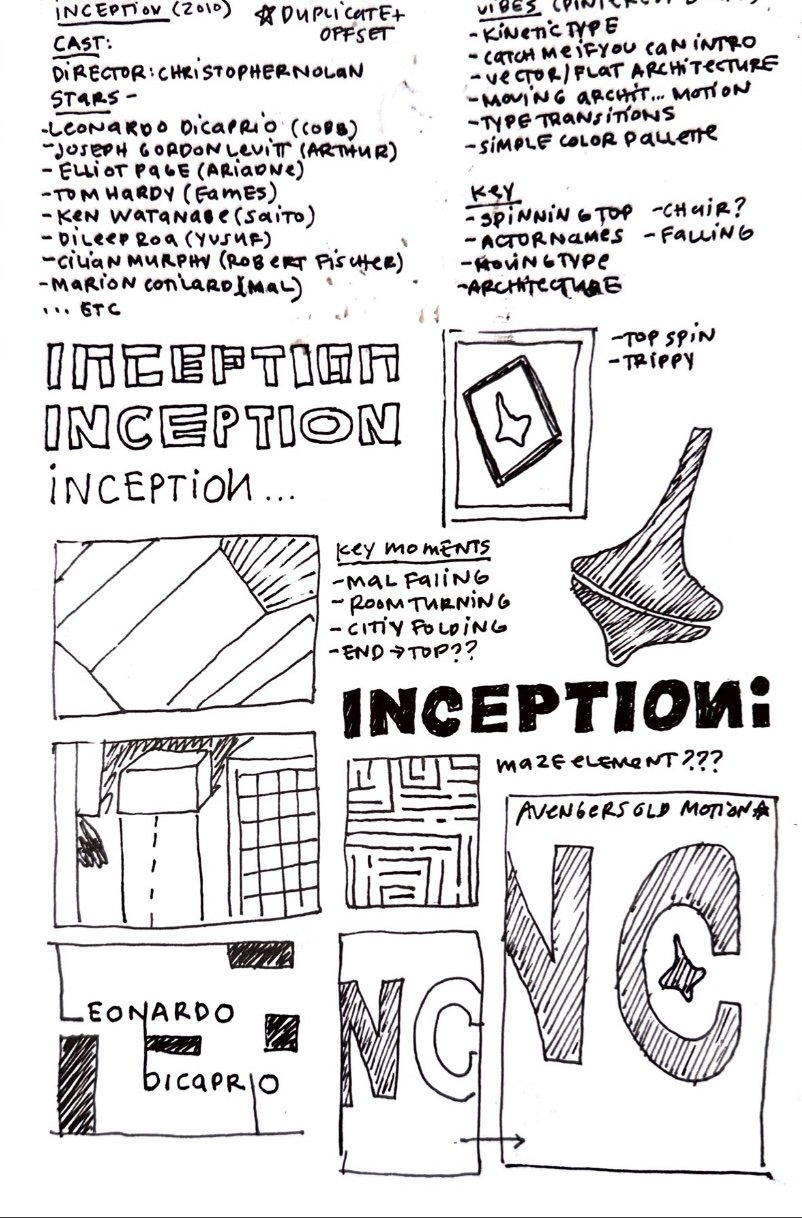 INCEPTION (2010)
☆ DUPLICATE +
OFFSET
CAST:
DIRECTOR: CHRISTOPHER NOLAN
STARS -
- LEONARDO DICAPRIO (COBB)
- JOSEPH GORDON LEVITT (ARTHUR)
- ELLIOT PAGE (ARIADNE)
- TOM HARDY (EAMES)
- KEN WATANABE (SAITO)
- DILEEP ROA (YUSUF)
- CILIAN MURPHY (ROBERT FISCHER)
- MARION COTILARD (MAL)
... ETC
VIBES
- KINETIC TYPE
- CATCH ME IF YOU CAN INTRO
- VECTOR/FLAT ARCHITECTURE
- MOVING ARCHIT... MOTION
- TYPE TRANSITIONS
- SIMPLE COLOR PALLETTE
KEY
- SPINNING TOP - CHAIR?
- ACTOR NAMES - FALLING
- MOVING TYPE
- ARCHITECTURE
INCEPTION
INCEPTION
INCEPTION...
- TOP SPIN
- TRIPPY
KEY MOMENTS
- MAL FALING
- ROOM TURNING
- CITIY FOLDING
- END → TOP??
INCEPTION:
MAZE ELEMENT???
AVENGERS OLD MOTION ☆
NC
LEONARDO
DICAPRIO
NC